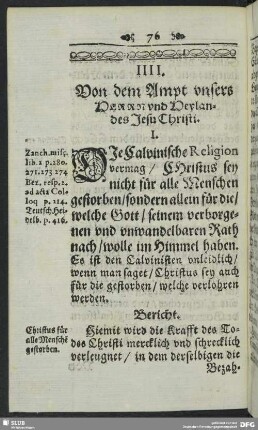 76
IIII.
Von dem Ampt vnsers
HERRN vnd Heylan-
des Jesu Christi.
I.
Zanch. misc.
lib. 2 p. 280.
271. 273 274
Bez. resp. 2.
ad acta Col-
loq p. 214.
Teutsch. Hei-
delb. p. 416.
DIe Calvinische Religion
vermag / CHristus sey
nicht für alle Menschen
gestorben / sondern allein für die /
welche Gott / seinem verborge-
nen vnd vnwandelbaren Rath
nach / wolle im Himmel haben.
Es ist den Calvinisten vnleidlich /
wenn man saget / Christus sey auch
für die gestorben / welche verlohren
werden.
Bericht.
Christus für
alle Menschē
gestorben.
Hiemit wird die Krafft des To-
des Christi mercklich vnd schrecklich
verleugnet / in dem derselbigen die
Bezah-
SLUB
DFG